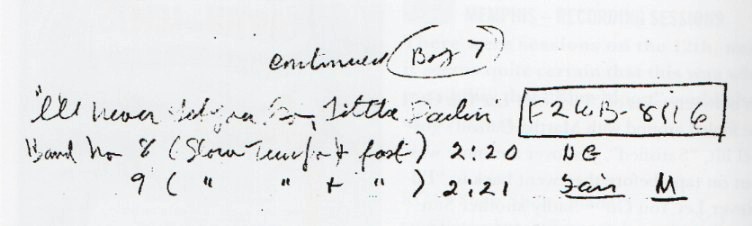 continued Box 7
"I'll never let you Go, Little Darlin' F2WB-8116
Band No 8 (Slow Tempo + fast) 2:20 NG
9 ( " " + " ) 2:21 Fair M